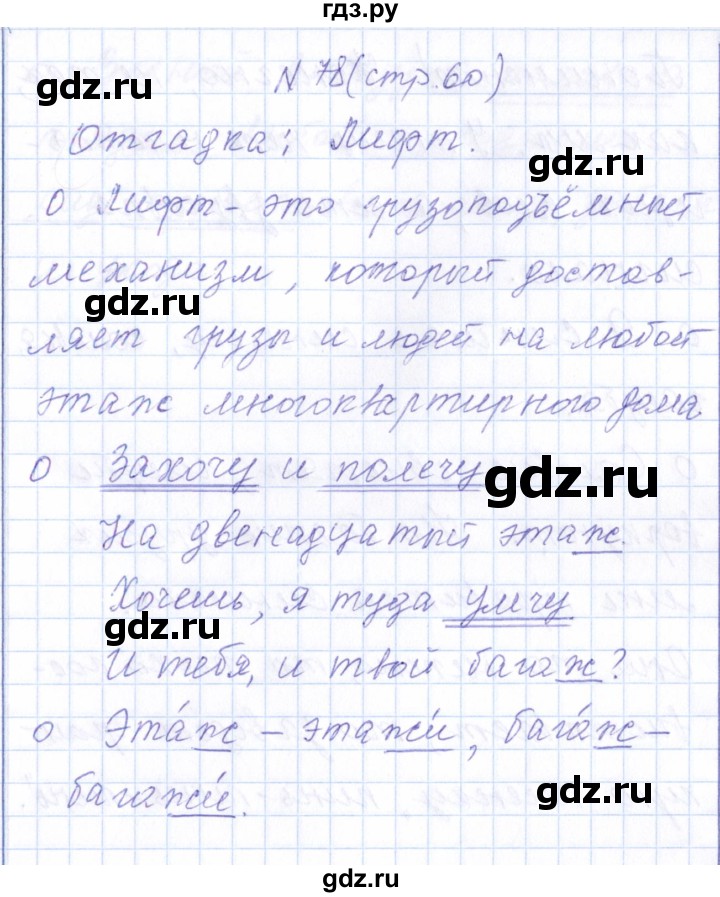 гдз.ру
N 78 (стр. 60)
gdz.ru
Отгадка: Лифт.
gdz.ru
О Лифт - это грузоподъёмный
gdz.ru
механизм, который достав-
gdz.ru
ляет грузы и людей на любой
этаж многоквартирного дома
О Захочу и полечу
gdz.ru
На двенадцатый этаж.
Хочешь, я туда умчу
gdz.ru
И тебя, и твой багаж?
о Эта́ж - этажи́, бага́ж -
багажи́.
gdz.ru
gdz.ru